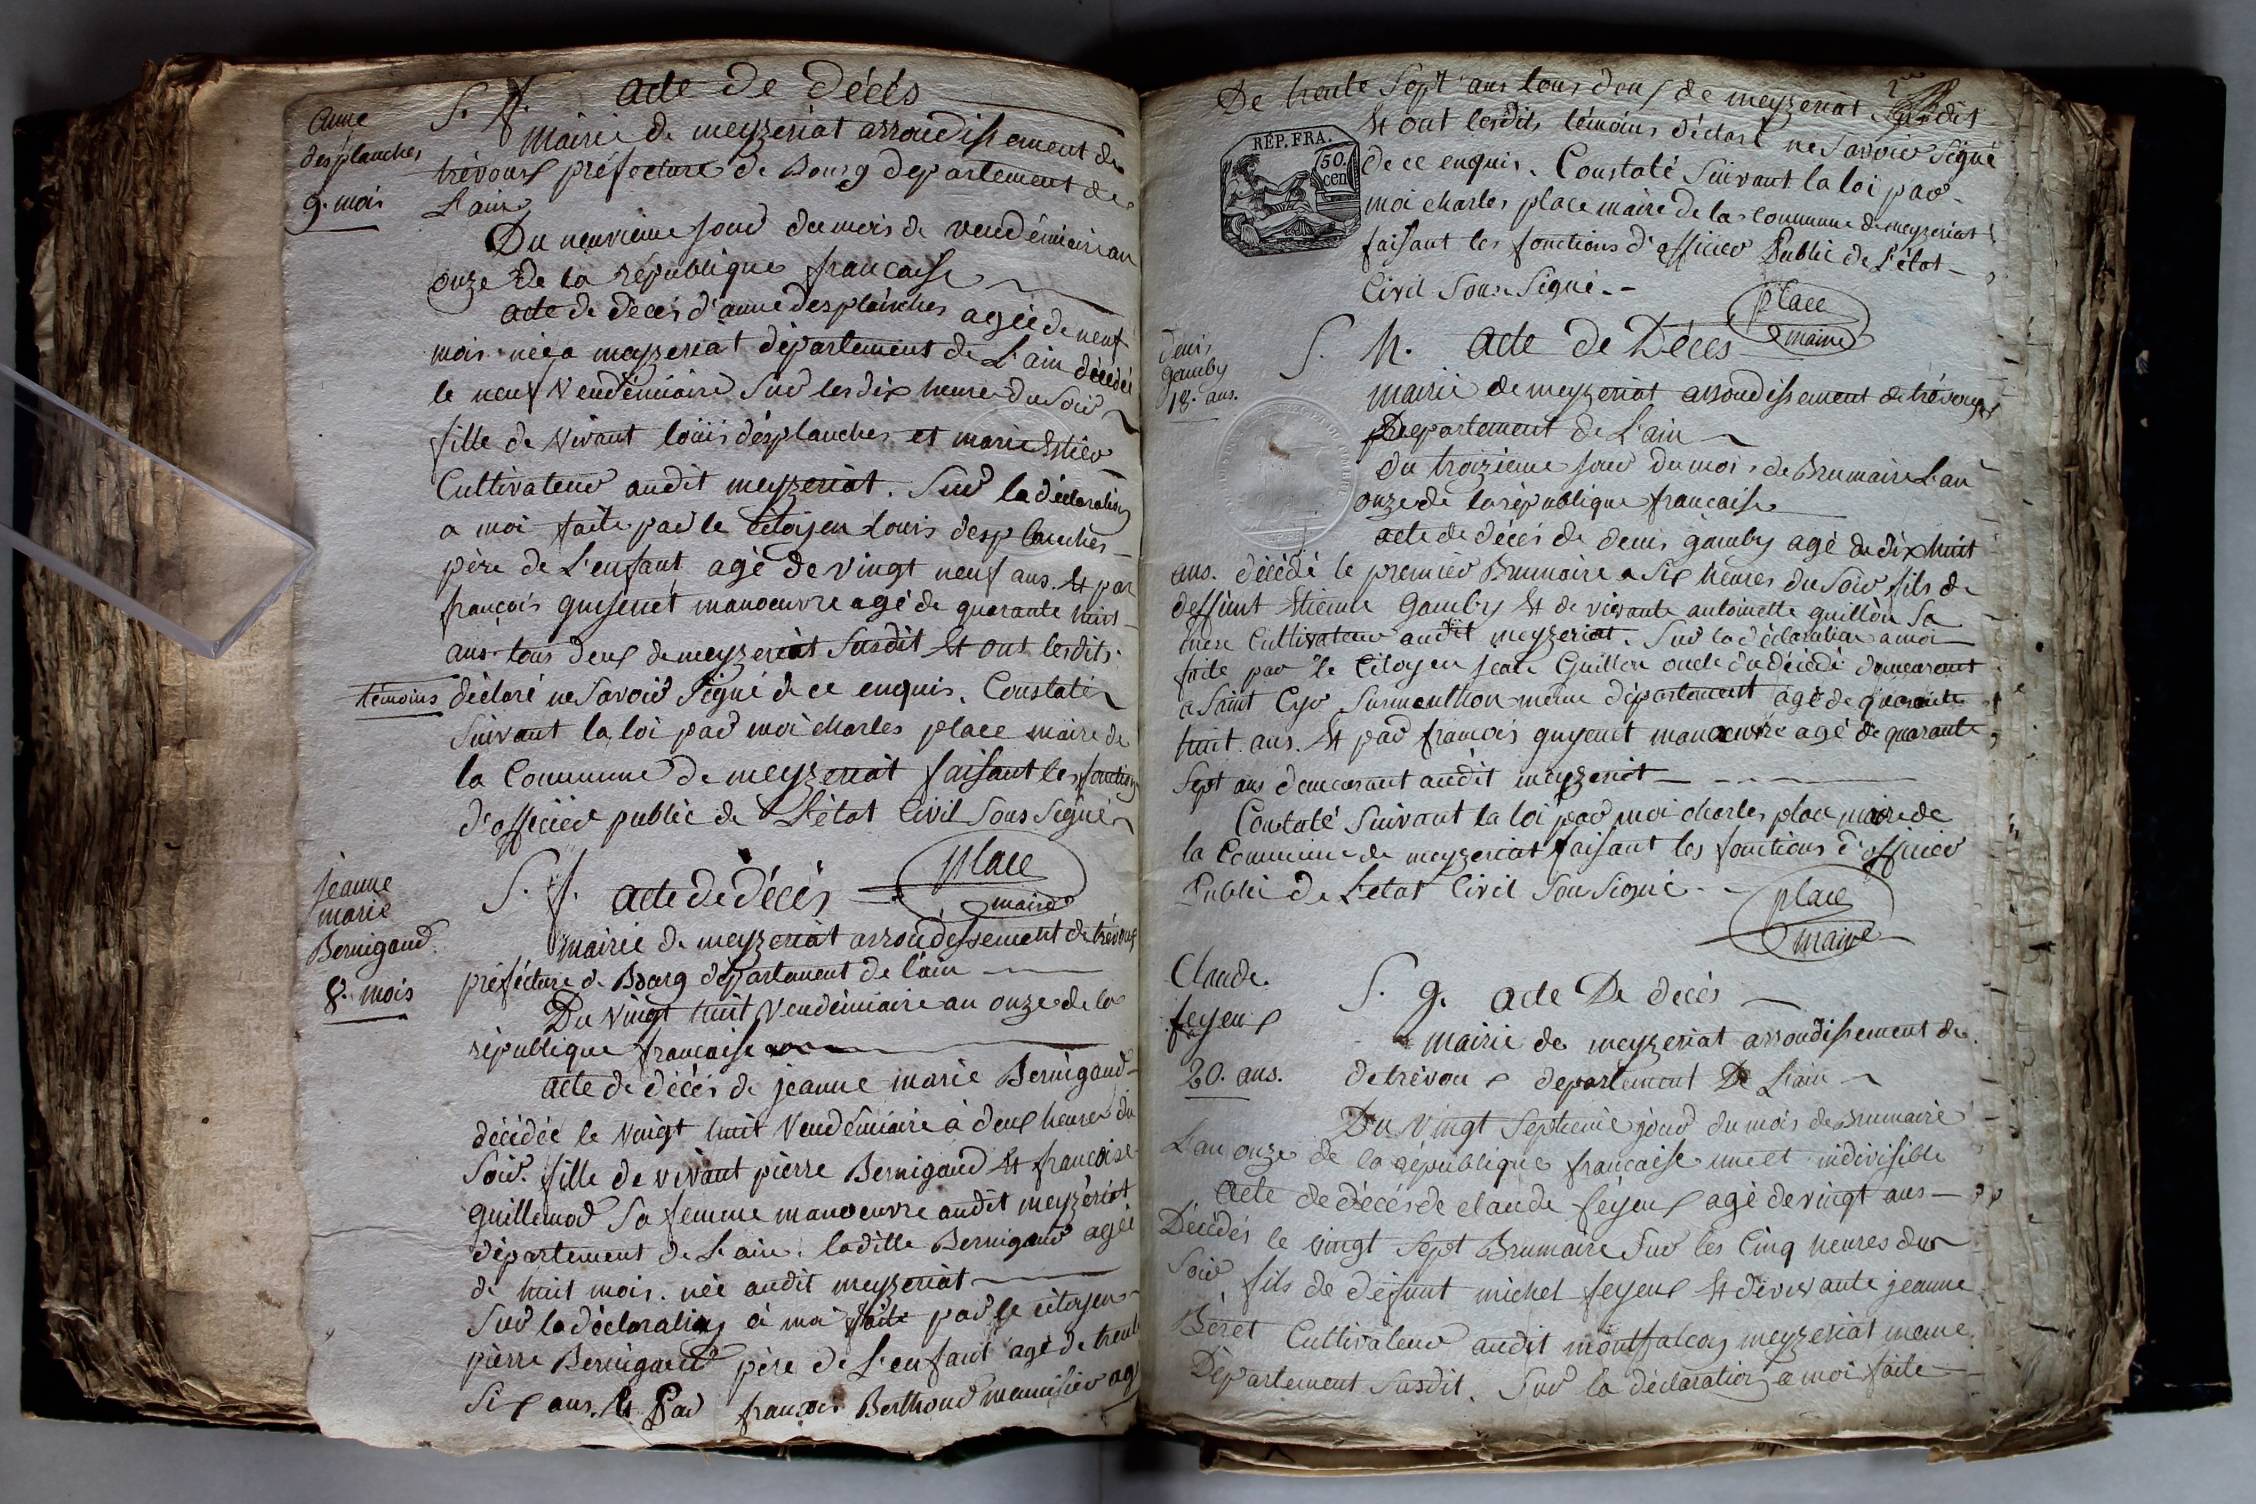 anne
desplanches
9. mois
S. f. acte de décès
Mairie de meyzeriat arrondissement de
trévoux préfecture de Bourg departement de
L'ain
Du neuvieme jour du mois de vendémiaire an
onze de la république francaise
acte de décès d'anne desplanches agée de neuf
mois née a meyzeriat département de L'ain décédée
le neuf Vendémiaire Sur les dix heure du Soir
fille de vivant louis desplanches et marie
Cultivateur audit meyzeriat. Sur la déclaration
a moi faite par le citoyen Louis desplanches
père de L'enfant agé de vingt neuf ans. Et par
françois guyenet manoeuvre agé de quarante huit
ans. tous deux de meyzeriat Susdit Et ont lesdits
témoins déclaré ne Savoir Signé de ce enquis. Constaté
Suivant la loi par moi charles place maire de
la Commune de meyzeriat faisant les fonctions
d'officier public de L'état Civil Sous Signé
place
maire
jeanne
marie
Bernigaud
8. mois
S. f. acte de décès
Mairie de meyzeriat arrondissement de trévoux
préfecture de Bourg département de l'ain
Du Vingt huit Vendémiaire an onze de la
république francaise
acte de décés de jeanne marie Bernigaud
décédée le vingt huit Vendémiaire à deux heures du
Soir. fille de vivant pierre Bernigaud Et francoise
guillemod Sa femme manoeuvre audit meyzériat
département de L'ain. laditte Bernigaud agée
de huit mois. née audit meyzeriat
Sur la déclaration à moi faite par le citoyen
pierre Bernigaud père de L'enfant agé de trente
Six ans. Et Par françois Berthoud menuisier agé
De trente Sept ans tous deux de meyzeriat Susdit
Et ont lesdits témoins déclaré ne Savoir Signé
de ce enquis. Constaté Suivant la loi par
moi charles place maire de la Commune de meyzeriat
faisant les fonctions d'officier Public de L'état
Civil Sous Signé.
RÉP. FRA.
50.
cen
place
maire
denis
gamby
18. ans.
S. M. acte de Déces
Mairie de meyzeriat arrondissement de trévoux
Département de L'ain
du troizieme jour du mois de Brumaire L'an
onze de la république francaise
acte de décés de denis gamby agé de dix huit
ans. décédé le premier Brumaire a Six heures du Soir fils de
deffunt Etienne Gamby Et de vivante antoinette guillon Sa
mere Cultivateur audit meyzeriat. Sur la déclaration a moi
faite par le Citoyen jean Guillon oncle du décédé demeurant
a Saint Cyr Surmenthon meme département agé de quarante
huit. ans. Et par francois guyenet manoeuvre agé de quarante
Sept ans demeurant audit meyzeriat
Constaté Suivant la loi par moi charles place maire de
la Commune de meyzeriat faisant les fonctions d'officier
Public de L'etat Civil Sou Signé
place
maire
Claude
feyeux
20. ans.
S. g. acte De decès
Mairie de meyzeriat arrondissement de
de trévoux departement De L'ain
Du Vingt Septieme jour du mois de Brumaire
L'an onze de la république francaise une et indivisible
acte de décés de claude feyeux agé de vingt ans
Décédés le vingt Sept Brumaire Sur les Cinq heures du
Soir fils de défunt michel feyeux Et de vivante jeanne
Beret Cultivateur audit montfalcon meyzeriat meme
Département Susdit. Sur la déclaration a moi faite